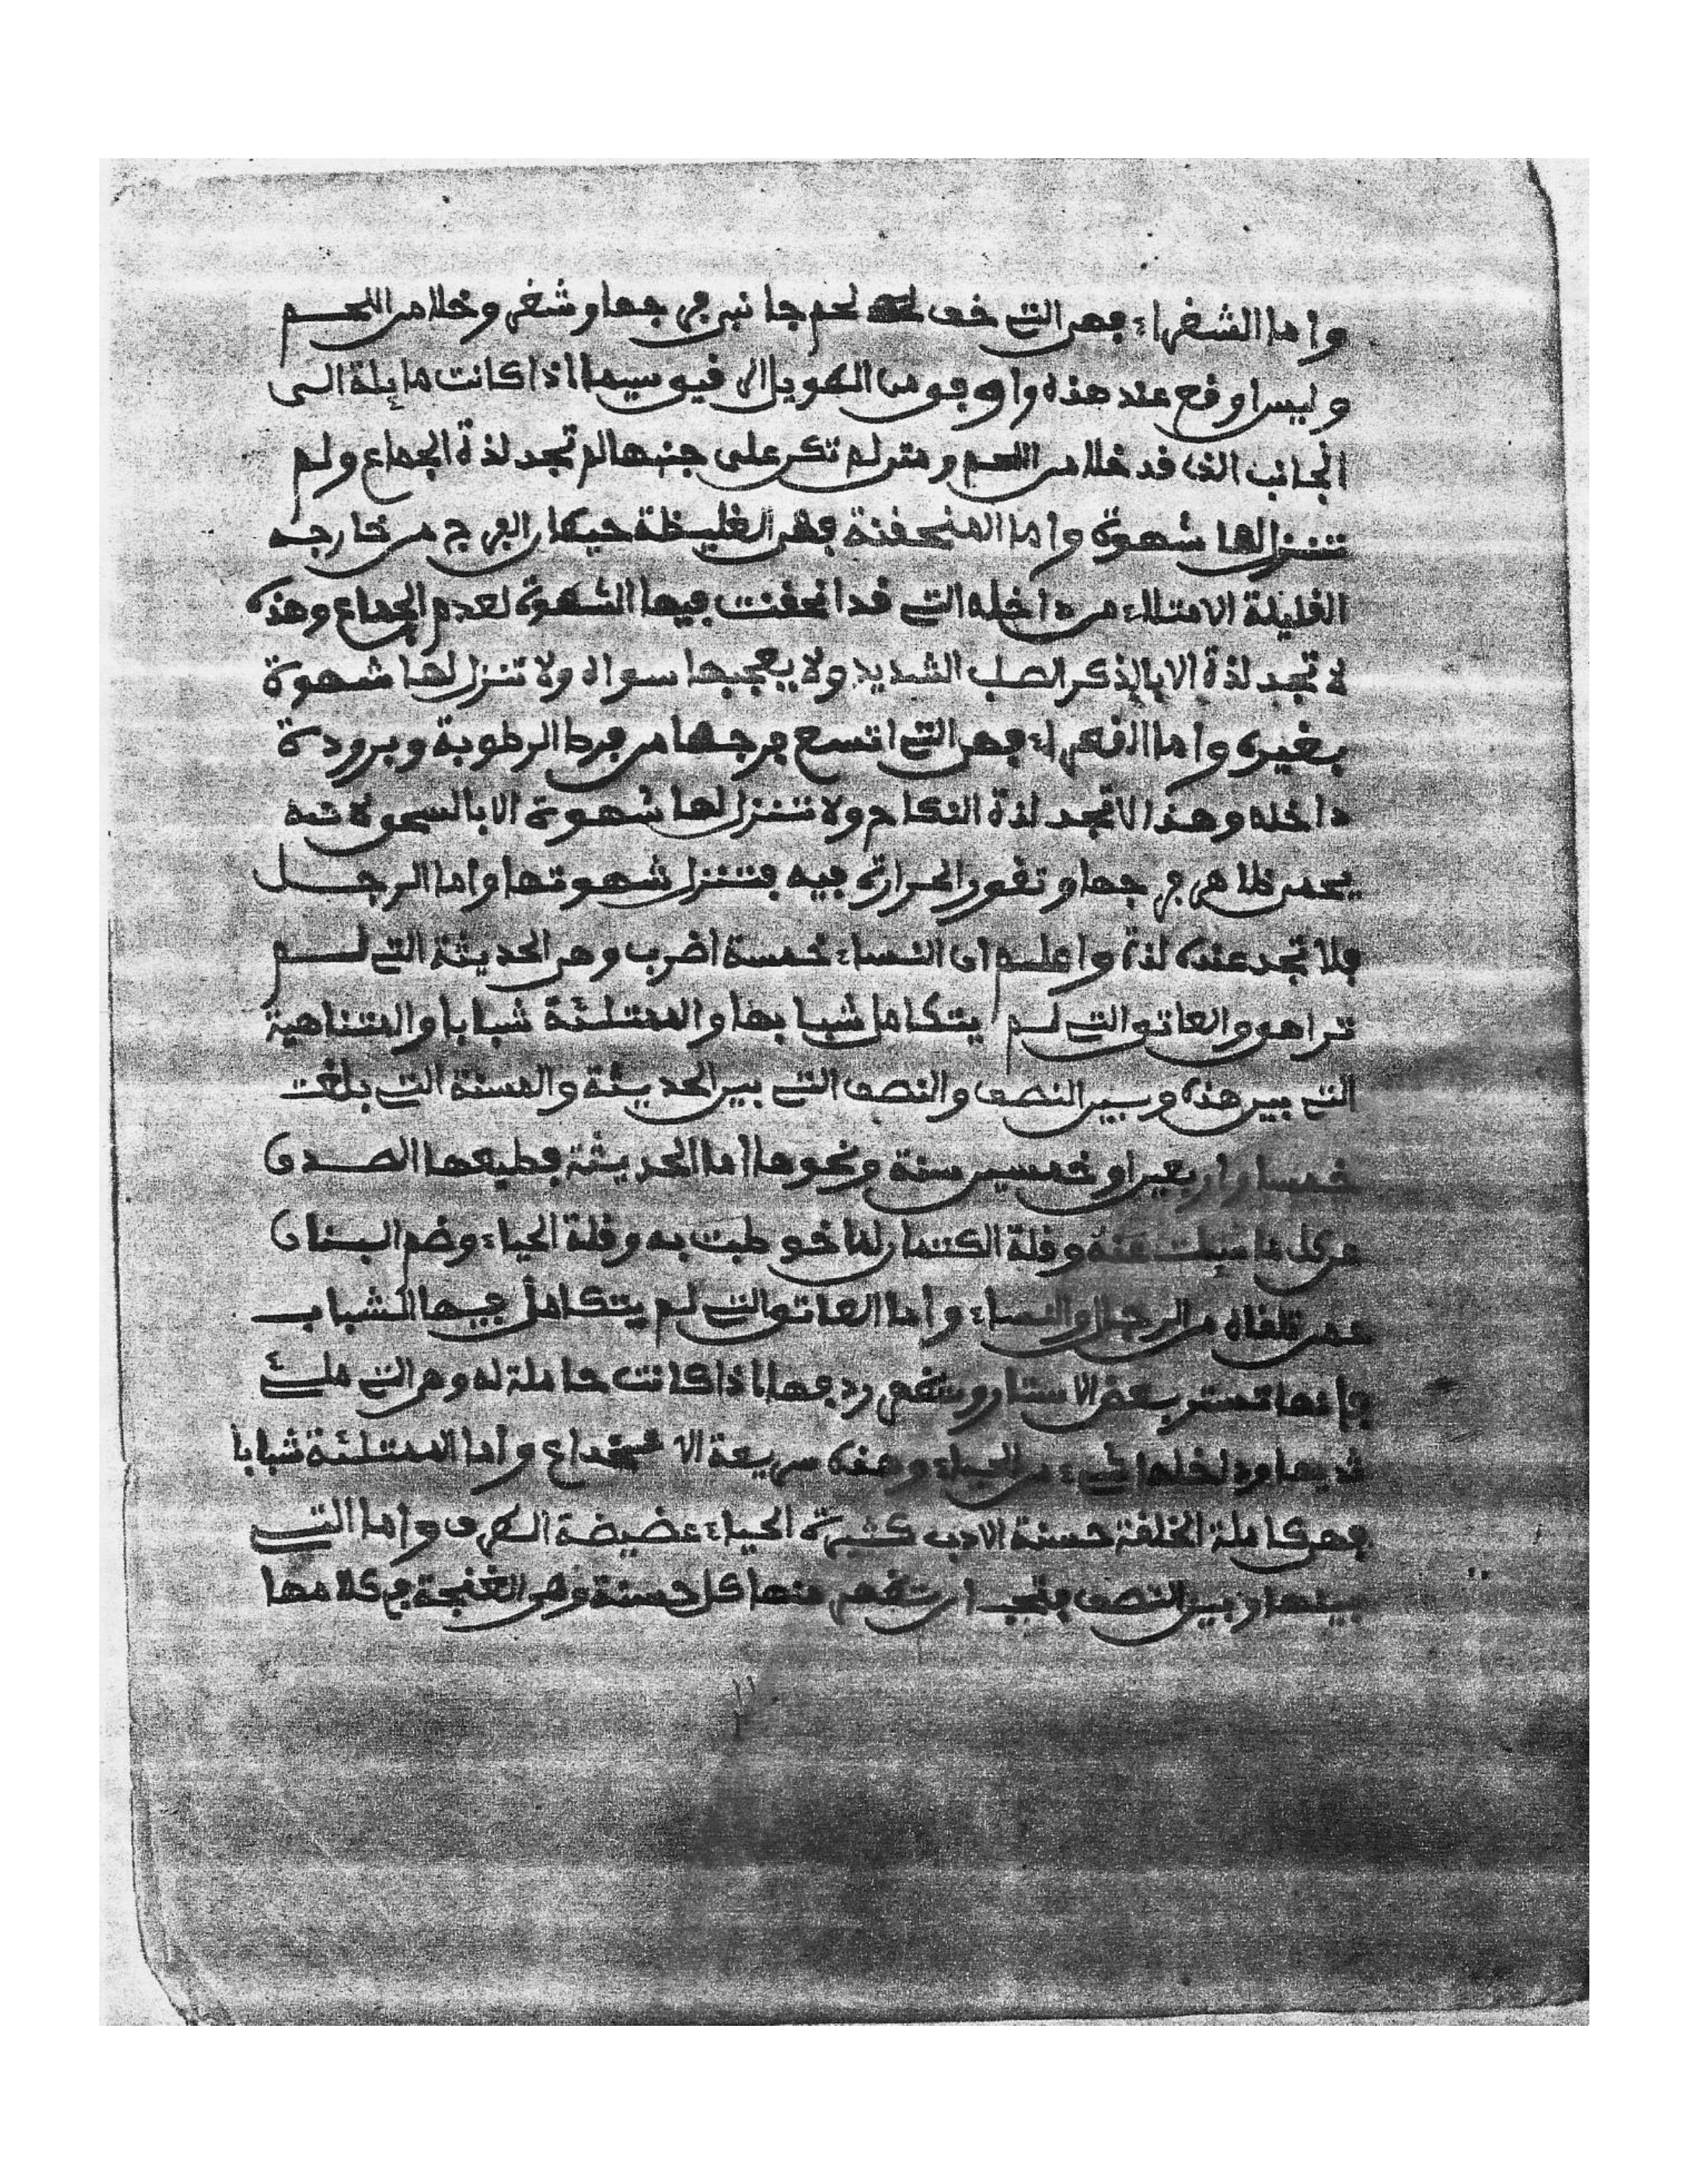 واما الشفراء فهى التى خف لحم جانبى فرجها وشفر وخلا من اللحم
وليس اوقع عند هذه واوفو من الطويل الرقيق وسيما اذا كانت مايلة الى
الجانب الذى قد خلا من اللحم ومتى لم تكن على جنبها لم تجد لذة الجماع ولم
تنزل لها شهوة واما المنحفنة فهى الغليظة حيطان الفرج من خارجه
القليلة الامتلاء من داخله التى قد انحفنت فيها الشهوة لعدم الجماع وهذه
لا تجد لذة الا بالذكر الصلب الشديد ولا يعجبها سواه ولا تنزل لها شهوة
بغيره واما القعراء فهى التى اتسع فرجها من فرط الرطوبة وبرودة
داخله وهذا لا تجد لذة النكاح ولا تنزل لها شهوة الا بالسحق لانه
يحمى ظاهر فرجها وتغور الحرارة فيه فتنزل شهوتها واما الرجل
فلا تجد عنده لذة واعلم ان النساء خمسة اضرب وهى الحديثة التى لم
تراهق والعاتق التى لم يتكامل شبابها والممتلئة شبابا والمتناهية
التى بين هذه وبين النصف والنصف التى بين الحديثة والمسنة التى بلغت
خمسا واربعين او خمسين سنة ونحوها اما الحديثة فطبعها الصدق
عن كل ما سيلت عنه وقلة الكتمان لما خوطبت به وقلة الحياء وضم البنان
عمن تلقاه من الرجال والنساء واما العاتق التى لم يتكامل فيها الشباب
فانها تستتر بعض الاستتار ويظهر ردفها اذا كانت حاملة له وهى التى ملئ
ثديها ودخلها شىء من الحياء وهذه سريعة الانخداع واما الممتلئة شبابا
فهى كاملة الخلقة حسنة الادب كثيرة الحياء غضيضة الطرف واما التى
بينها وبين النصف فتحب ان يظهر منها كل حسنة وهى الغنجة فى كلامها